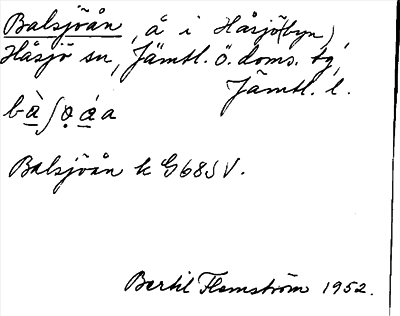 Balsjöån, å i Håsjö(byn),
Håsjö sn, Jämtl. ö. doms. tg,
Jämtl. l.
Balsjöån k G68SV.
Bertil Flemström 1952.